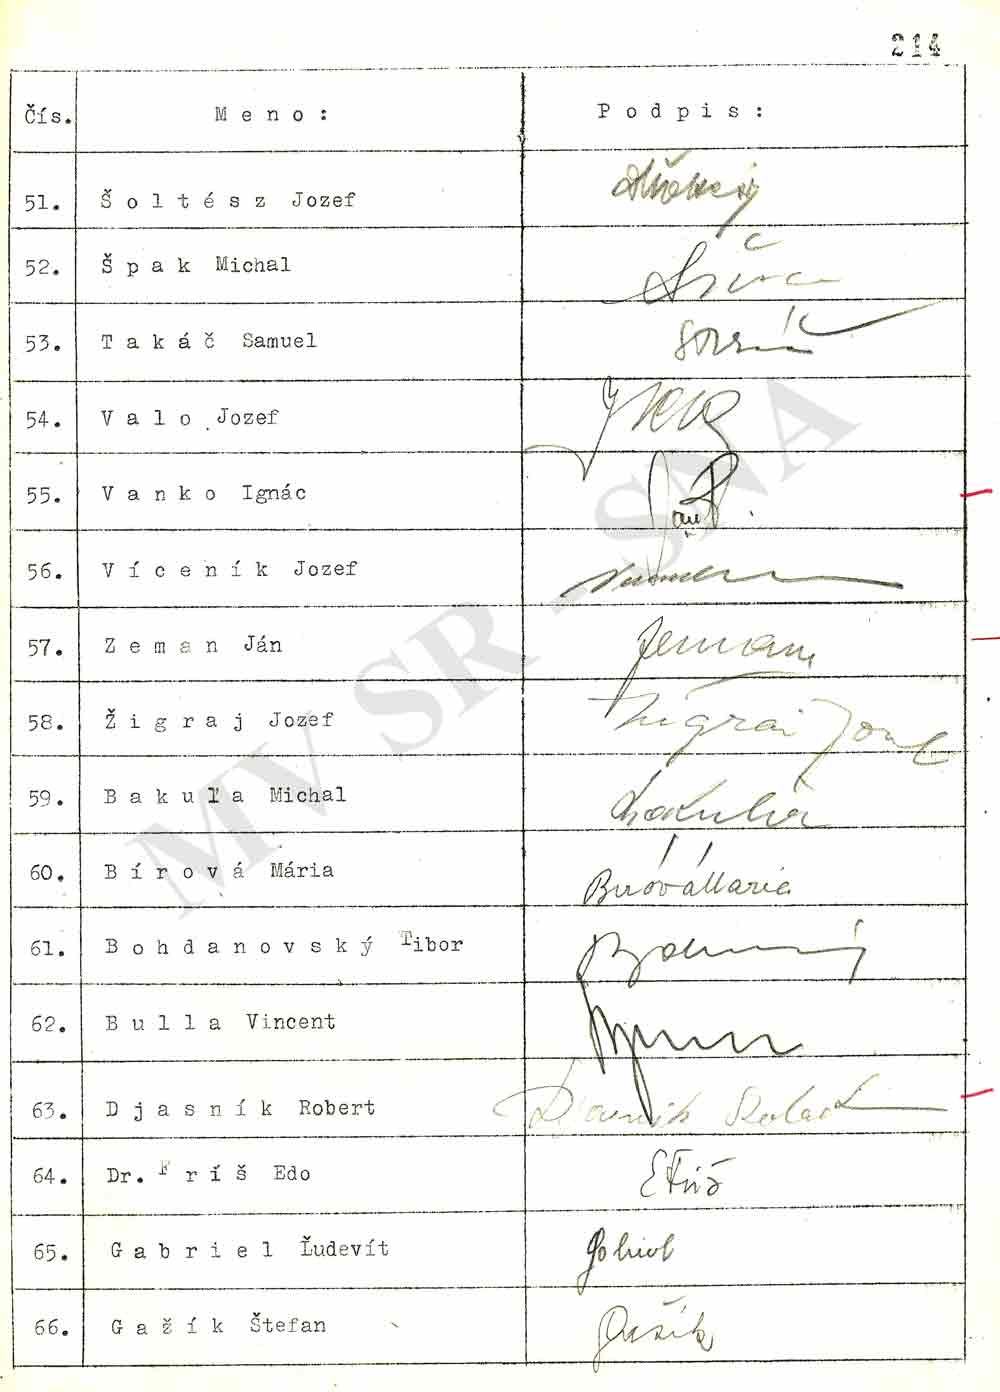 214
Čís. Meno: Podpis:
51. Šoltész Jozef
52. Špak Michal
53. Takáč Samuel
54. Valo Jozef
55. Vanko Ignác
56. Víceník Jozef
57. Zeman Ján Zeman
58. Žigraj Jozef Žigrai Jozef
59. Bakuľa Michal Bakuľa
60. Bírová Mária Bírová Mária
61. Bohdanovský Tibor
62. Bulla Vincent
63. Djasník Robert
64. Dr. Fríš Edo EFriš
65. Gabriel Ľudevít Gabriel
66. Gažík Štefan Gažík
MV SR - SNA